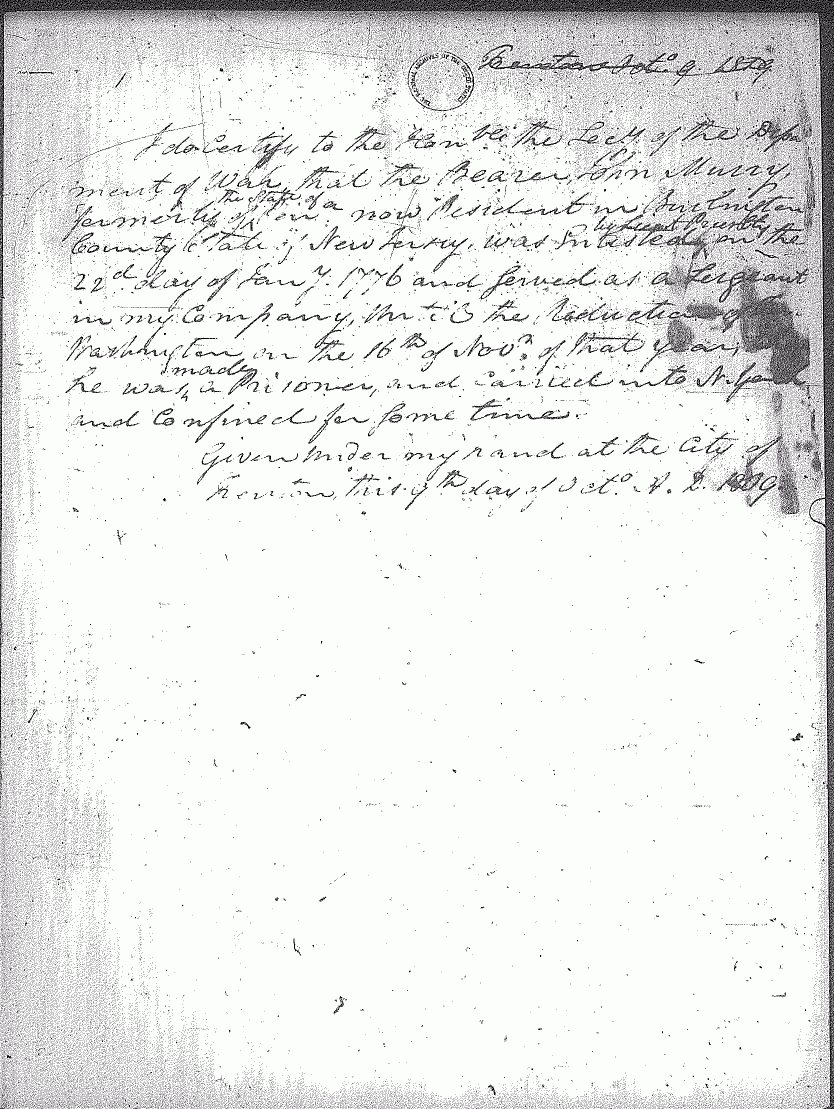 Trenton Octo. 9 1809
I do Certify to the Honble. the Secy. of the Depart
ment of War, that the Bearer, John Murry,
formerly of the State of Pena. now Resident in Burlington
County State of New Jersey, was Inlisted by Lieut on the
22d. day of Jany. 1776 and Served as a Sergeant
in my Company, Until the Reduction of
Washington, on the 16th of Novr. of that year,
he was made a Prisoner, and Carried into N. York
and Confined for Some time.
Given Under my Hand at the City of
Trenton, this 9th day of Octo. A. D. 1809.